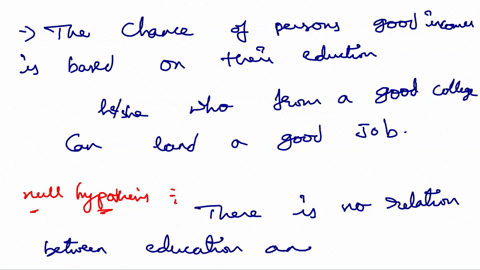 -> The Chance of persons good incomes
is based on their eduction
he/she who from a good college
Can land a good Job.
null hypothesis :- There is no relation
between education an